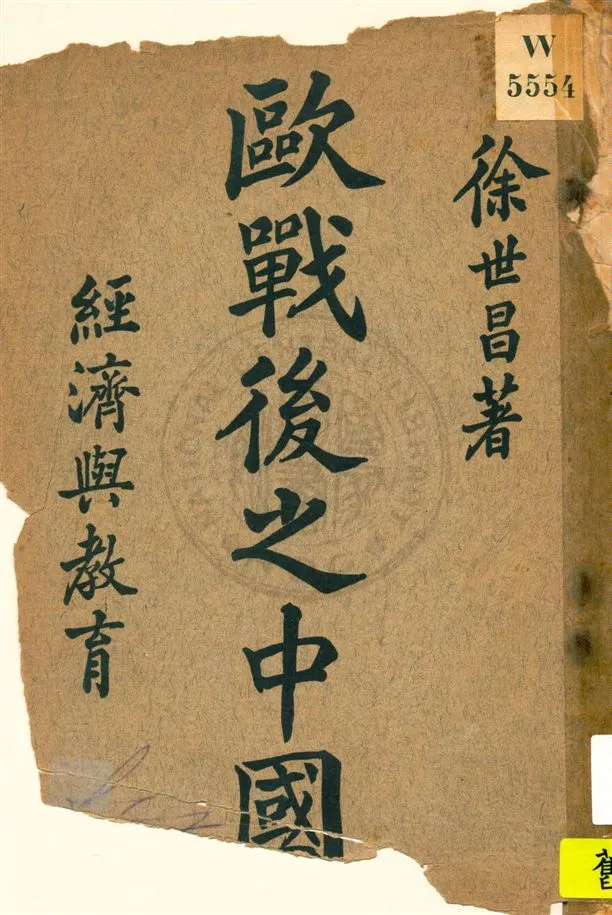 W
5554
徐世昌著
歐戰後之中國
經濟與教育
舊